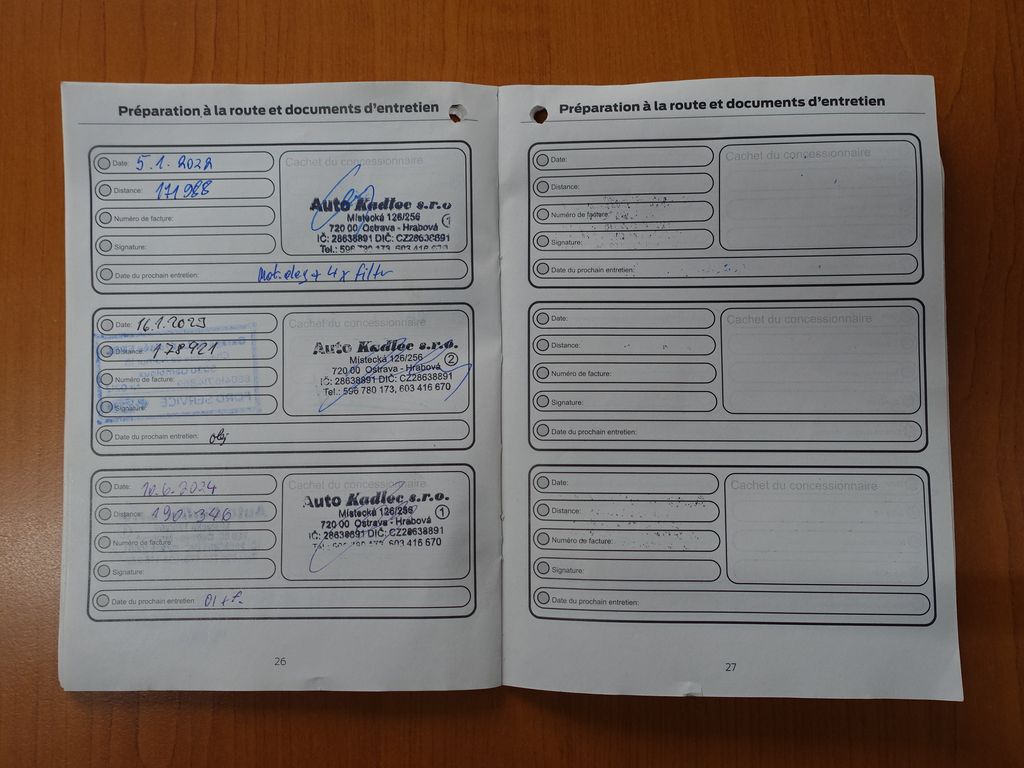 Préparation à la route et documents d'entretien
Date: 5.1.2022
Distance: 171988
Numéro de facture:
Signature:
Cachet du concessionnaire
Auto Kadlec s.r.o
Místecká 126/256
720 00 Ostrava - Hrabová
IČ: 28638891 DIČ: CZ28638891
Tel.: 596 780 173, 603 416 670
Date du prochain entretien: Mot. olej + 4x filtr
Date: 16.1.2023
Distance: 178921
Numéro de facture:
Signature:
FORD SERVICE
Cachet du concessionnaire
Auto Kadlec s.r.o.
Místecká 126/256
720 00 Ostrava - Hrabová
IČ: 28638891 DIČ: CZ28638891
Tel.: 596 780 173, 603 416 670
2
Date du prochain entretien: olej
Date: 10.6.2024
Distance: 190 346
Numéro de facture:
Signature:
Cachet du concessionnaire
Auto Kadlec s.r.o.
Místecká 126/256
720 00 Ostrava - Hrabová
IČ: 28638891 DIČ: CZ28638891
603 416 670
1
Date du prochain entretien: Ol + f.
26
Préparation à la route et documents d'entretien
Date:
Distance:
Numéro de facture:
Signature:
Cachet du concessionnaire
Date du prochain entretien:
Date:
Distance:
Numéro de facture:
Signature:
Cachet du concessionnaire
Date du prochain entretien:
Date:
Distance:
Numéro de facture:
Signature:
Cachet du concessionnaire
Date du prochain entretien:
27